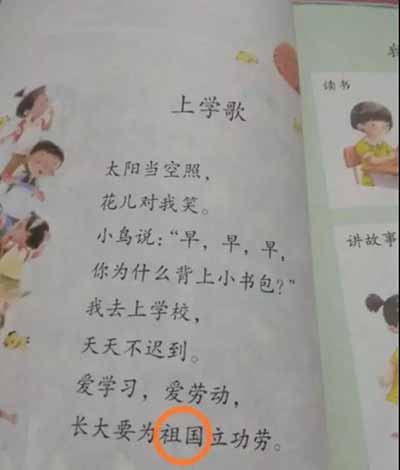 上学歌
太阳当空照，
花儿对我笑。
小鸟说：“早，早，早，
你为什么背上小书包？”
我去上学校，
天天不迟到。
爱学习，爱劳动，
长大要为祖国立功劳。
读书
讲故事